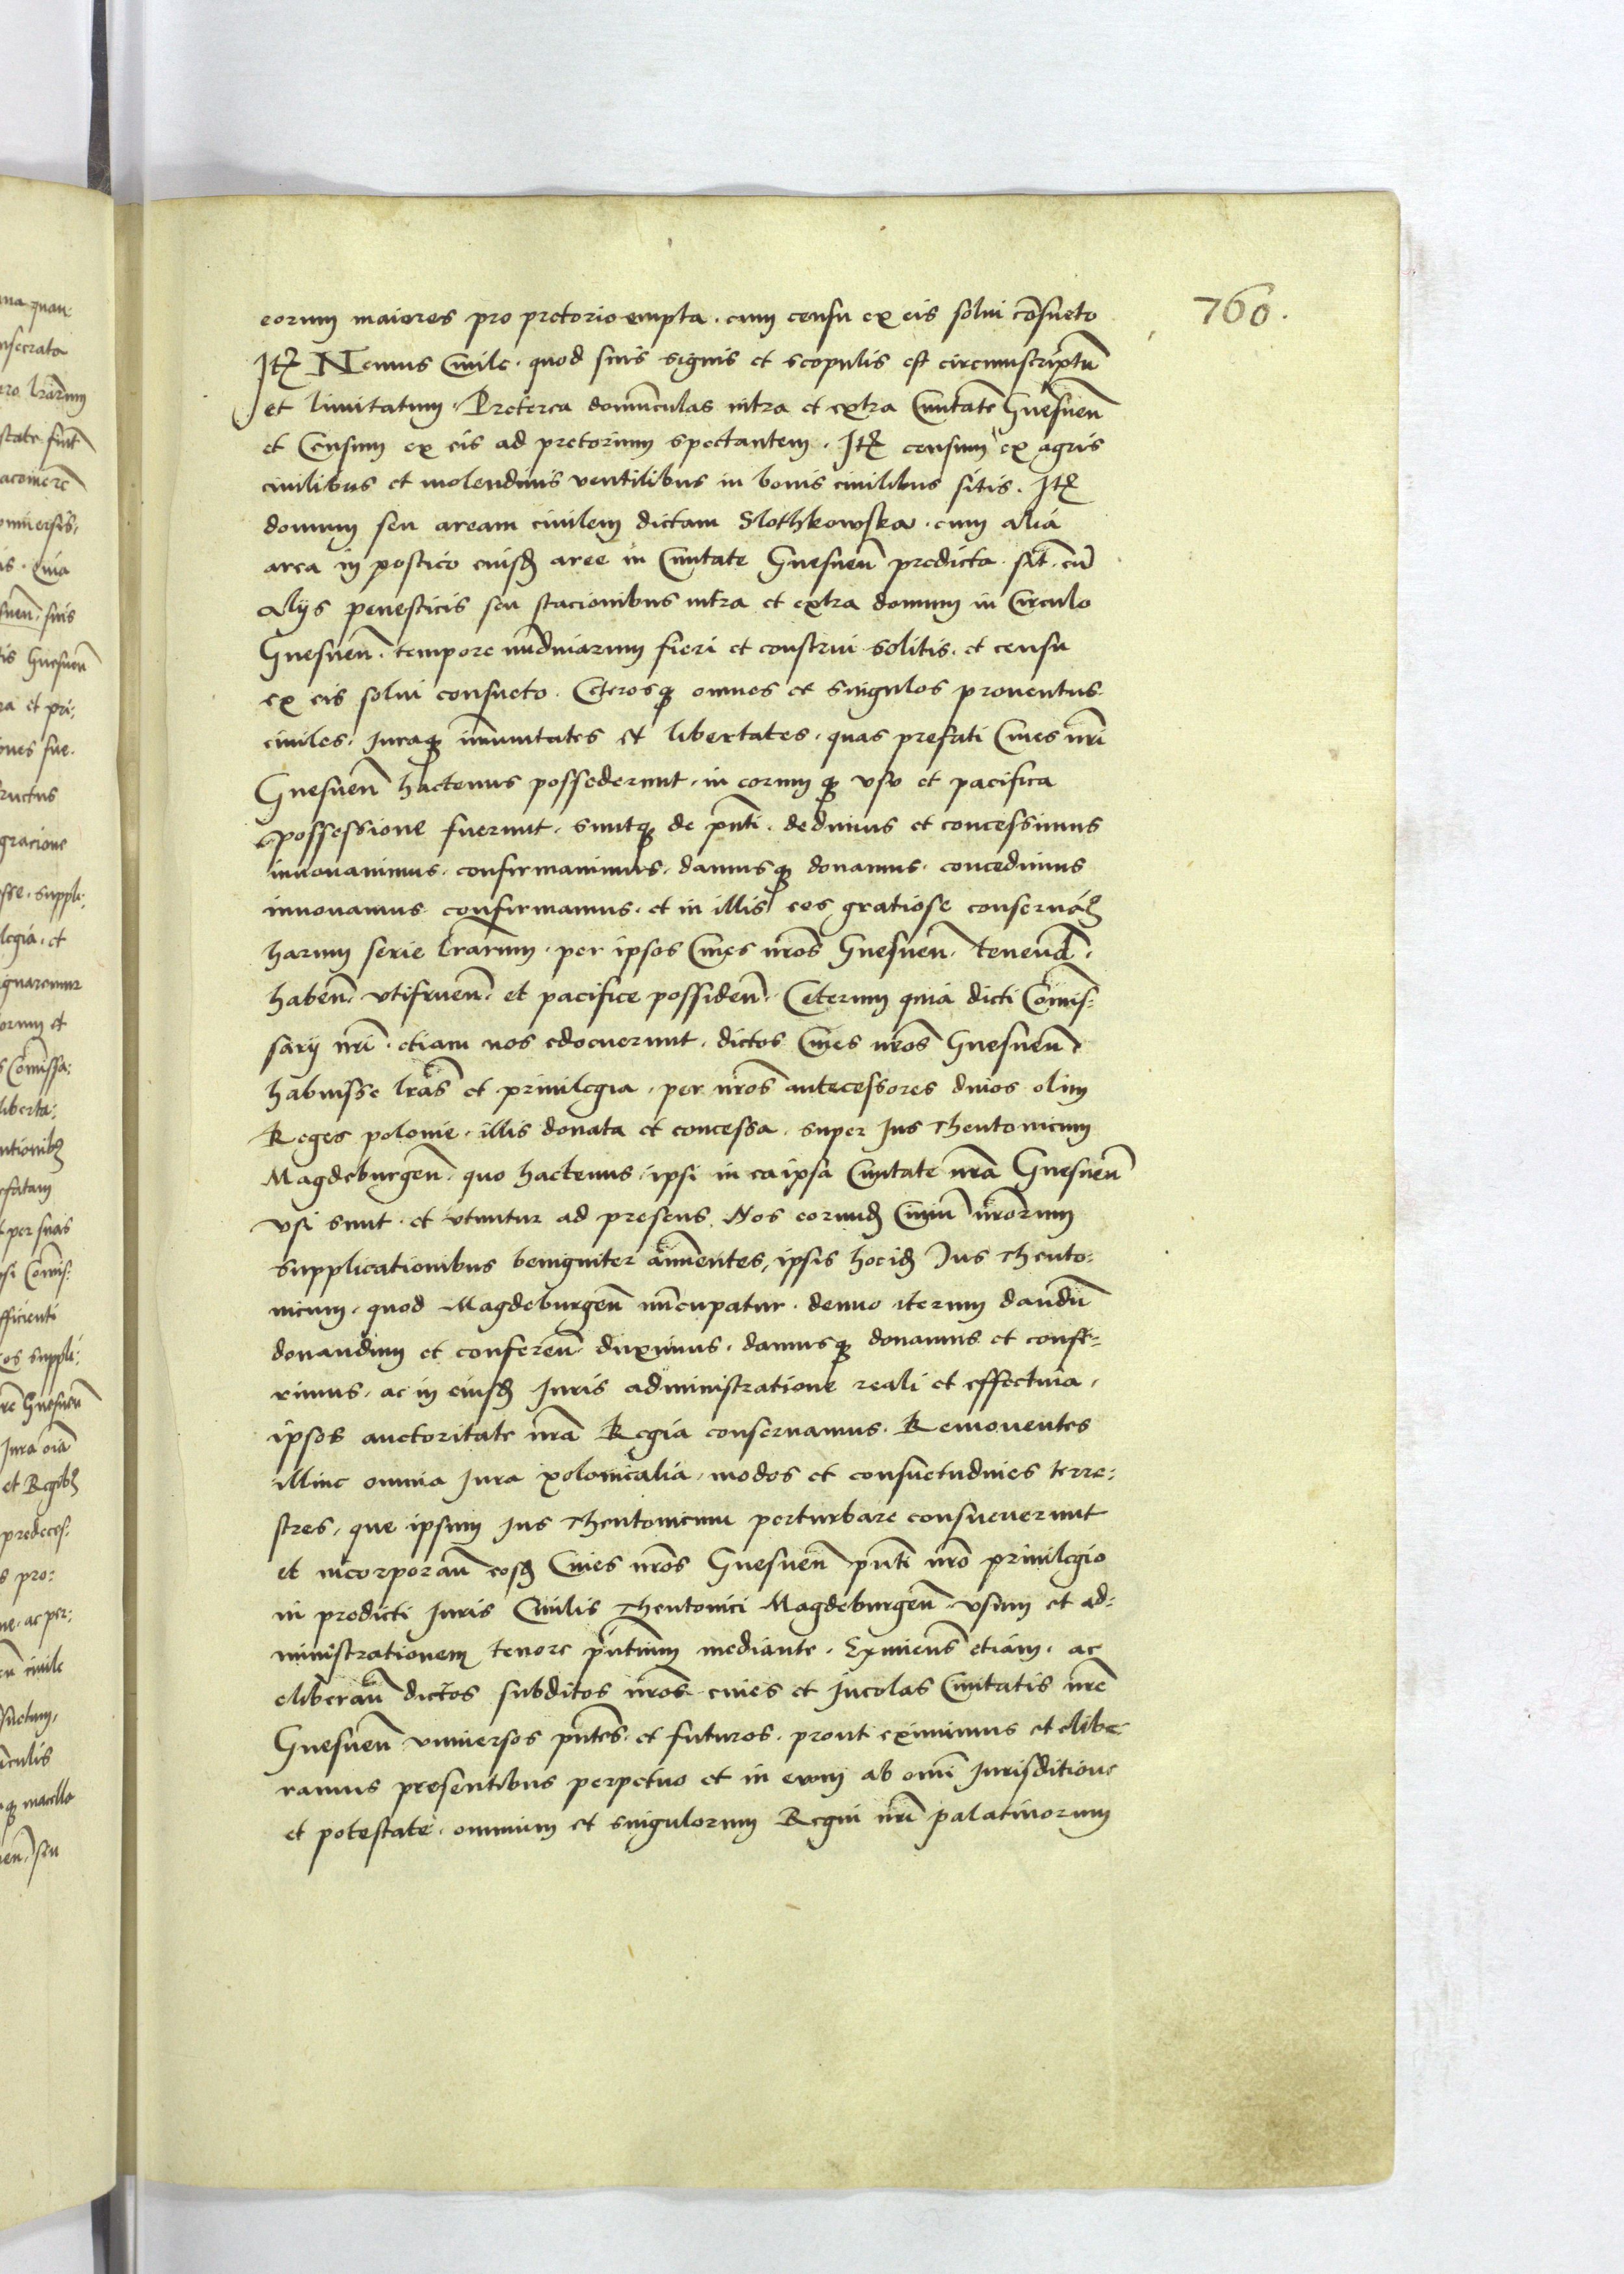 760.
eorum maiores pro pretorio empta. cum censu ex eis solui cõsueto
Itꝫ Nemus Ciuile. quod suis signis et scopulis est circumscriptũ
et limitatum. Preterea domũculas intra et extra Ciuitatẽ Gnesneñ
et Censum ex eis ad pretorium spectantem. Itꝫ censum ex agris
ciuilibus et molendinis ventilibus in bonis ciuilibus sitis. Itꝫ
domum seu aream ciuilem dictam Slothkowska. cum alia
area in postico eiusđ aree in Ciuitate Gnesneñ predicta. sit̃. cũ
alijs penesticis seu stacionibus intra et extra domum in Circulo
Gnesneñ. tempore nundinarum fieri et construi solitis. et censu
ex eis solui consueto. Ceterosꝗ omnes et singulos prouentus
ciuiles. Juraꝗ immunitates et libertates. quas prefati Ciues nr̃i
Gnesneñ hactenus possederunt. in eorumꝗ vsu et pacifica
possessione fuerunt. suntꝗ de pñti. dedimus et concessimus
innouauimus. confirmauimus. damusꝗ donamus. concedimus
innouamus confirmamus. et in illis eos gratiose conseruaꝫ
harum serie lr̃arum. per ipsos Ciues nr̃os Gnesneñ. tenenđ.
habeñ. vtifrueñ. et pacifice possideñ. Ceterum quia dicti Cõmis-
sarij nr̃i. etiam nos edocuerunt. dictos Ciues nr̃os Gnesneñ.
habuisse lr̃as et priuilegia. per nr̃os antecessores diuos olim
Reges polonie. illis donata et concessa. super Jus Theutonicum
Magdeburgeñ. quo hactenus. ipsi in ea ipsa Ciuitate nr̃a Gnesneñ
vsi sunt. et vtuntur ad presens. Nos eorunđ Ciuiũ nr̃orum
supplicationibus benigniter añuentes, ipsis hociđ Jus Theuto-
nicum. quod Magdeburgeñ nũcupatur. denuo iterum dandũ
donandum et confereñ duximus. damusꝗ donamus et confe-
rimus. ac in eiusđ Juris administratione reali et effectiua.
ipsos auctoritate nr̃a Regia conseruamus. Remouentes
illinc omnia Jura polonicalia. modos et consuetudines terre-
stres. que ipsum Jus Theutonicum perturbare consueuerunt
et incorporañ eosđ Ciues nr̃os Gnesneñ pñti nr̃o priuilegio
in predicti Juris Ciuilis Theutonici Magdeburgeñ vsum et ad-
ministrationem tenore pñtium mediante. Eximeñs etiam. ac
eliberañ dictos subditos nr̃os ciues et Incolas Ciuitatis nr̃e
Gnesneñ vniuersos pñtes. et futuros. prout eximimus et elibe
ramus presentibus perpetuo et in euum ab om̃i Jurisditione
et potestate. omnium et singulorum Regni nr̃i palatinorum